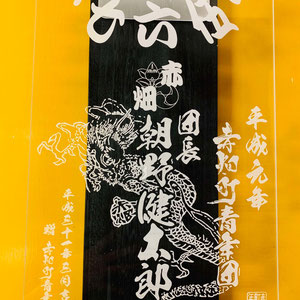 平成元年
赤畑町青年団
赤畑
団長
朝野健太郎
平成三十一年三月吉
贈 赤畑町青年